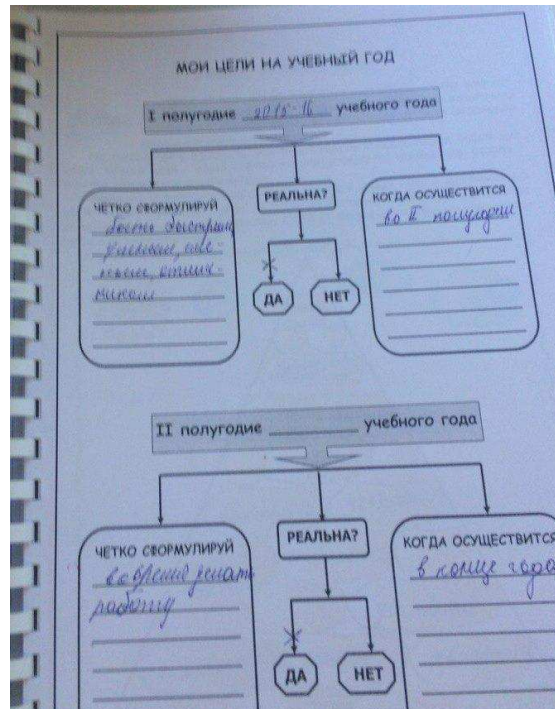 МОИ ЦЕЛИ НА УЧЕБНЫЙ ГОД
I полугодие 2015-16 учебного года
ЧЕТКО СФОРМУЛИРУЙ
быть быстрым
умным,
отлич-
ником
РЕАЛЬНА?
ДА
НЕТ
КОГДА ОСУЩЕСТВИТСЯ
во II полугодии
II полугодие учебного года
ЧЕТКО СФОРМУЛИРУЙ
во время делать
работу
РЕАЛЬНА?
ДА
НЕТ
КОГДА ОСУЩЕСТВИТСЯ
в конце года